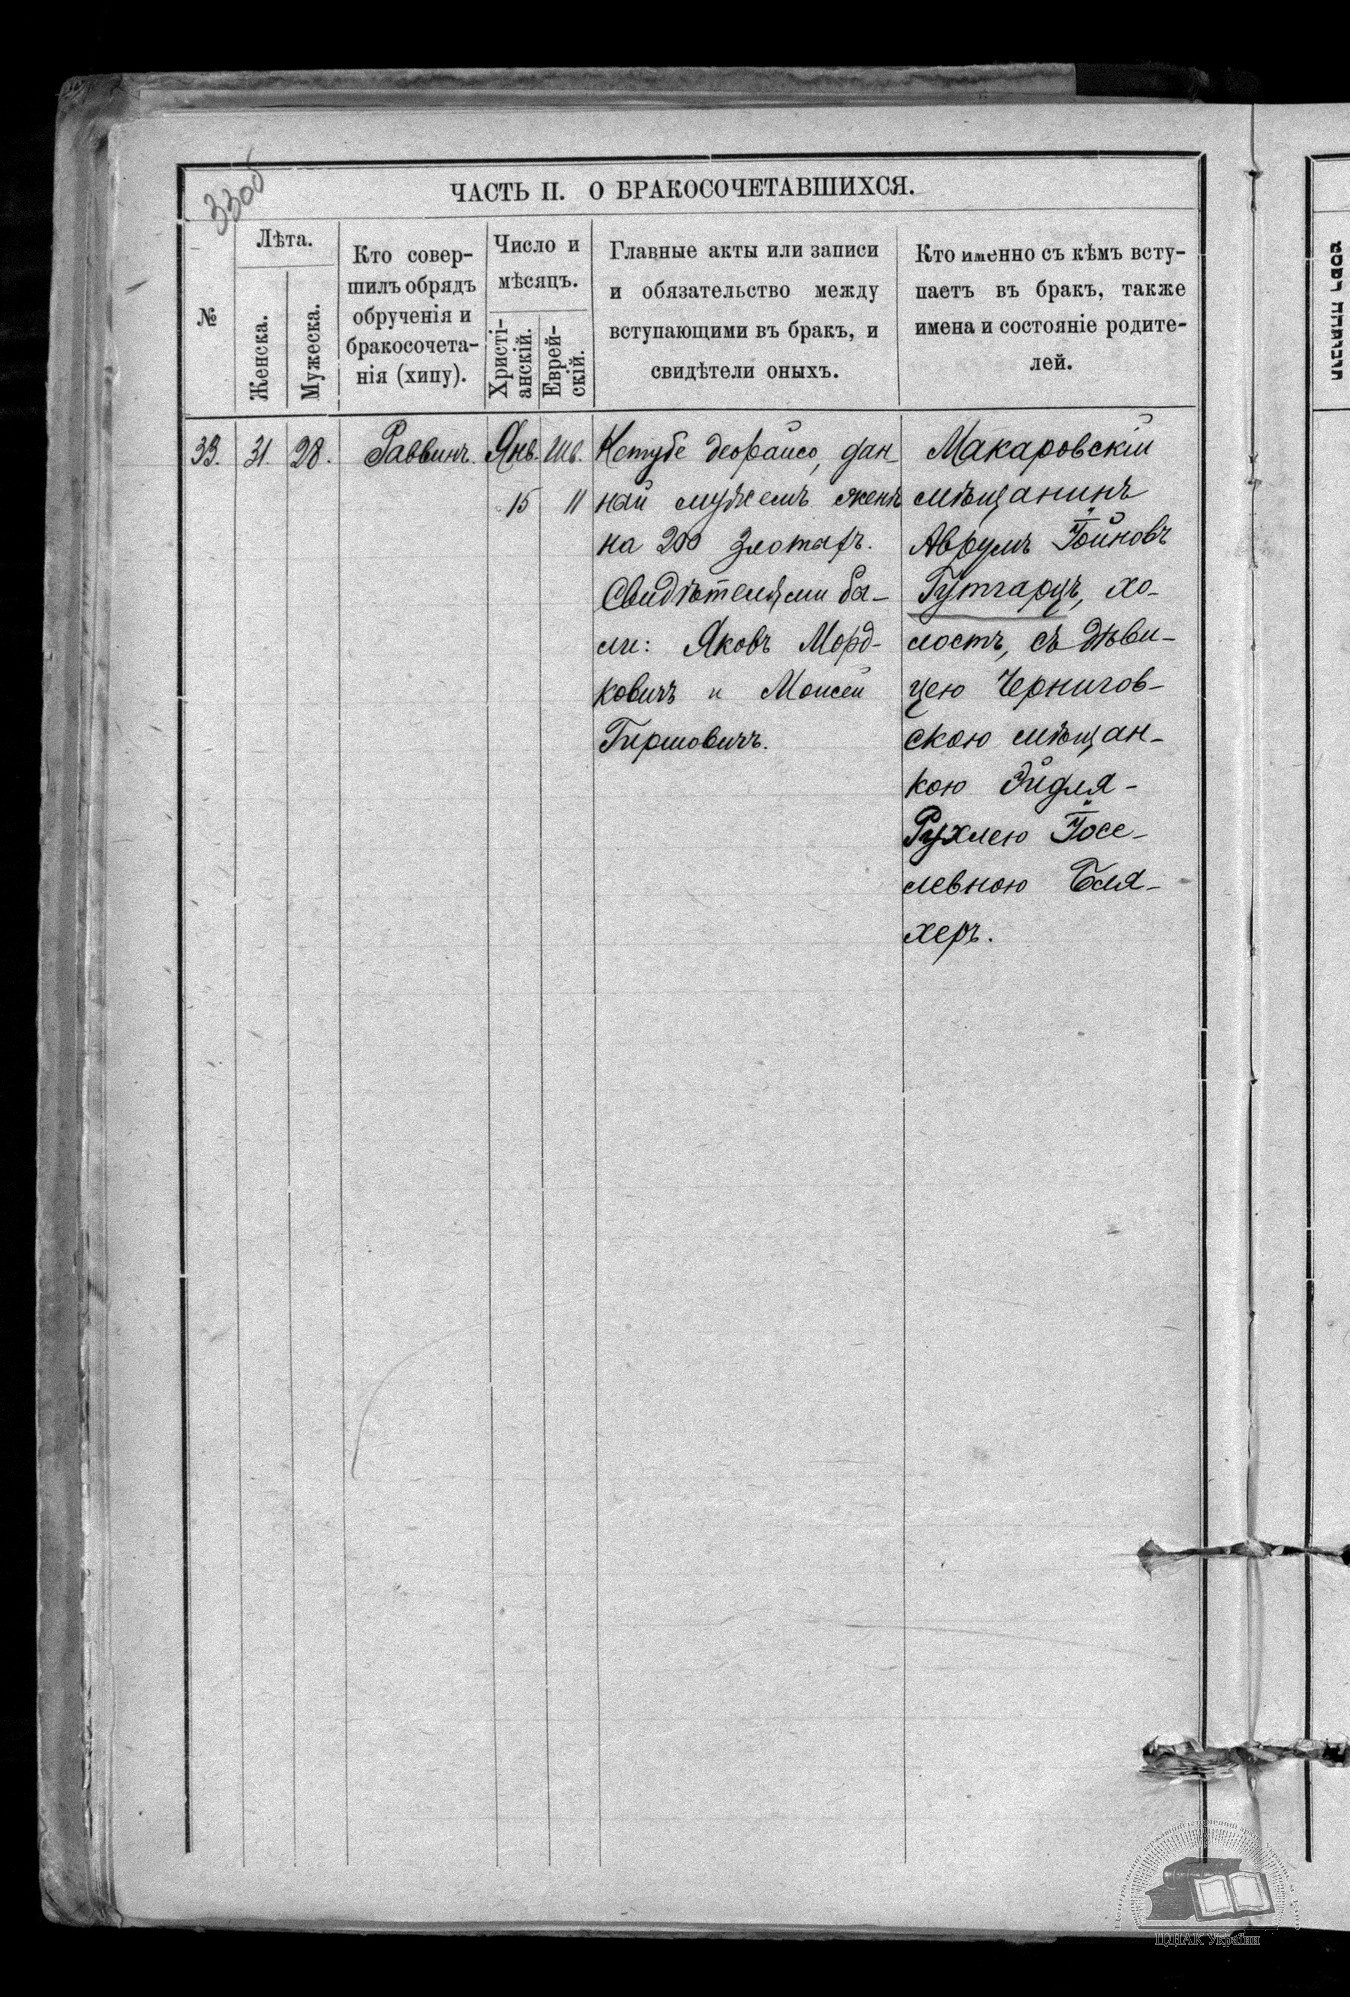 33об
ЧАСТЬ II. О БРАКОСОЧЕТАВШИХСЯ.
№
Лѣта.
Женска.
Мужеска.
Кто совер-
шилъ обрядъ
обрученія и
бракосочета-
нія (хипу).
Число и
мѣсяцъ.
Христі-
анскій.
Еврей-
скій.
Главные акты или записи
и обязательство между
вступающими въ бракъ, и
свидѣтели оныхъ.
Кто именно съ кѣмъ всту-
паетъ въ бракъ, также
имена и состояніе родите-
лей.
33.
31.
28.
Раввинъ.
Янв.
15
Шв.
11
Кетубе деорайсо, дан-
ная мужемъ женѣ
на 200 злотыхъ.
Свидѣтелями бы-
ли: Яковъ Морд-
ковичъ и Моисей
Гиршовичъ.
Макаровскій
мѣщанинъ
Аврумъ Іойновъ
Гутгарцъ, хо-
лостъ, съ дѣви-
цею Чернигов-
скою мѣщан-
кою Эйдля-
Рухлею Іосе-
левною Бля-
херъ.
ЦДІАК України